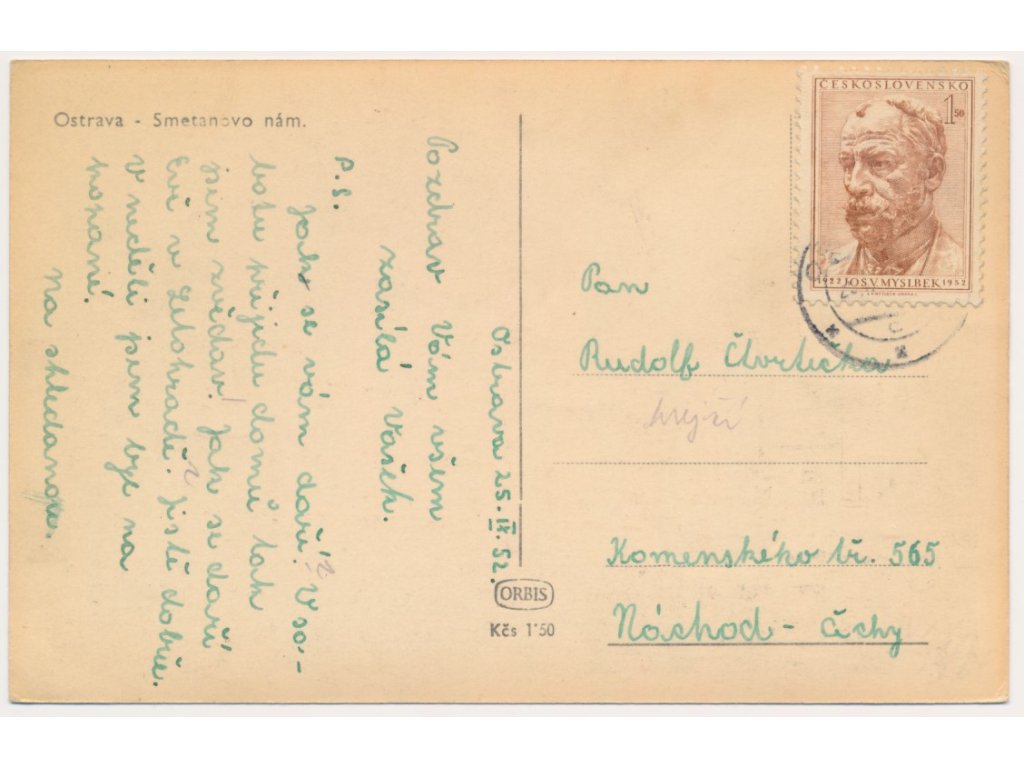 Ostrava - Smetanovo nám.
Ostrava 25. IX. 52.
Pozdrav Vám všem
zasílá Vašek.
P.S.
Jak se vám daří? V so-
botu přijedu domů tak
jsem zvědav! Jak se daří
Evě v Letohradě? Jistě dobře.
V neděli jsem byl na
kopané!
Na shledanou.
ČESKOSLOVENSKO
1 50
1922 JOS. V. MYSLBEK 1952
Pan
Rudolf Čtvrtečka
Komenského tř. 565
Náchod - Čechy
ORBIS
Kčs 1˙50